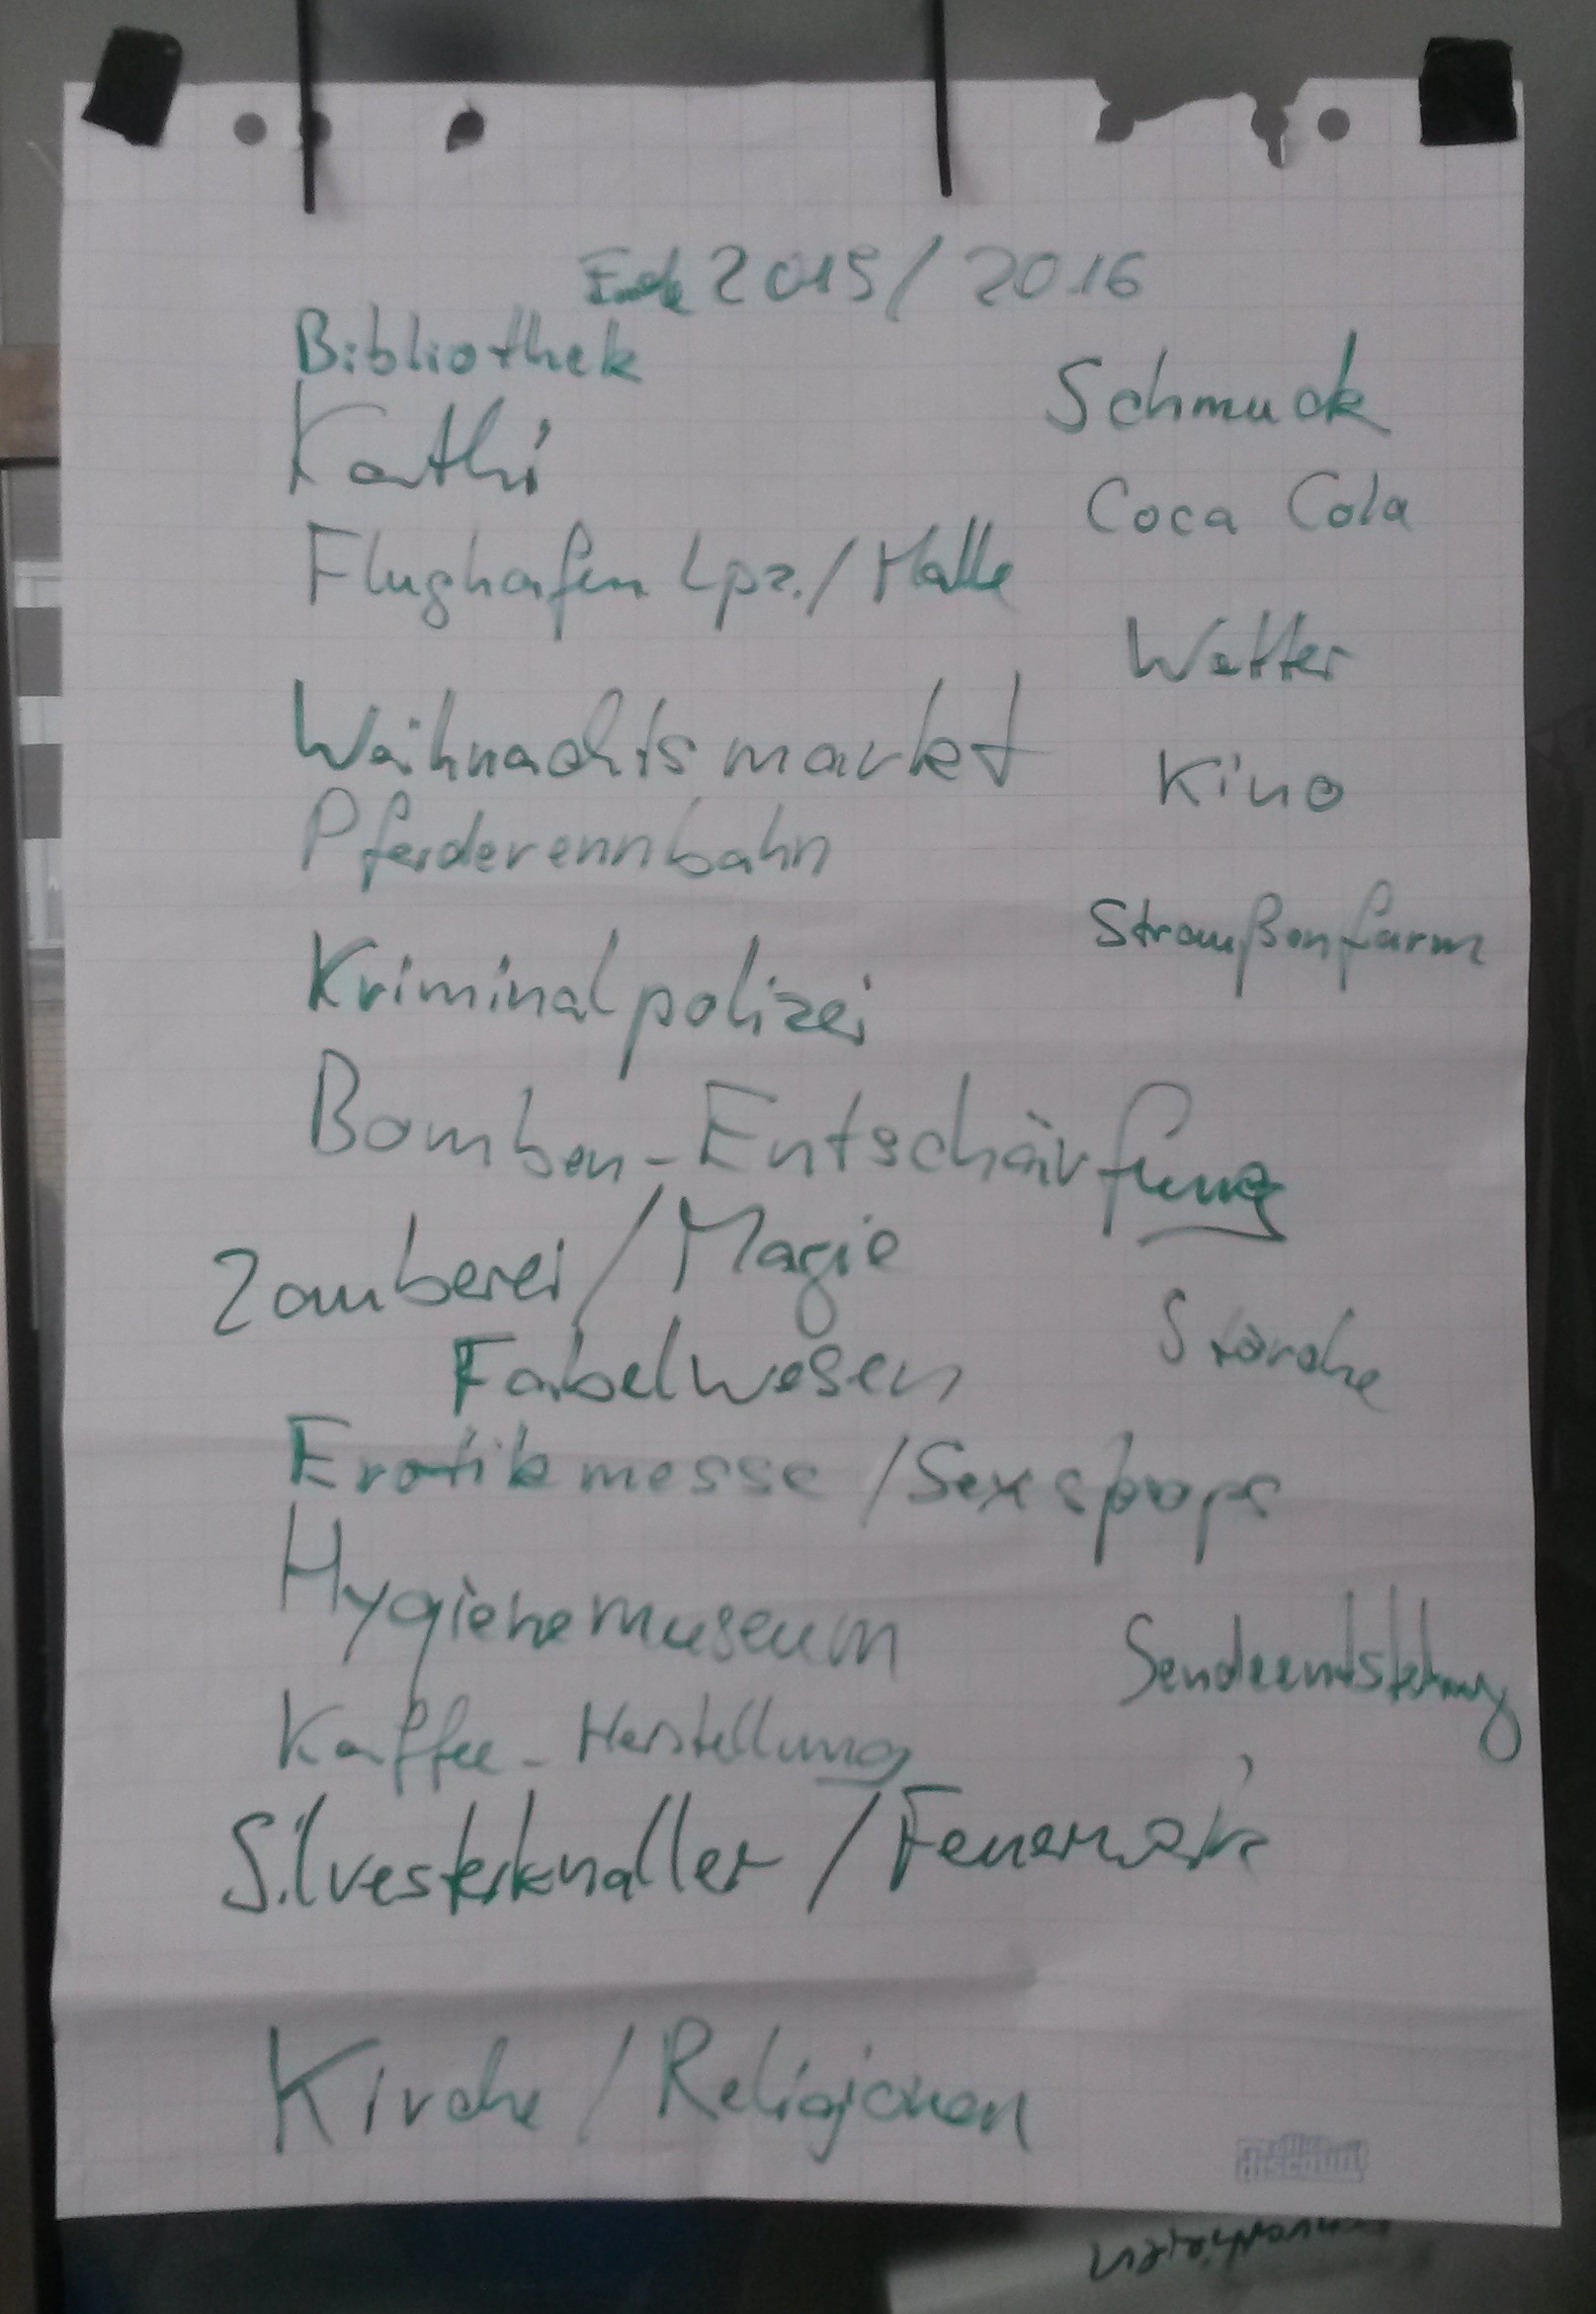 Ende 2015 / 2016
Bibliothek
Kathi
Flughafen Lpz. / Halle
Weihnachtsmarkt
Pferderennbahn
Kriminalpolizei
Bomben-Entschärfung
Zauberei / Magie
Fabelwesen
Erotikmesse / Sexshops
Hygienemuseum
Kaffee-Herstellung
Silvesterknaller / Feuerwerk
Kirche / Religionen
Schmuck
Coca Cola
Wetter
Kino
Straußenfarm
Störche
Sendeentstehung
discount